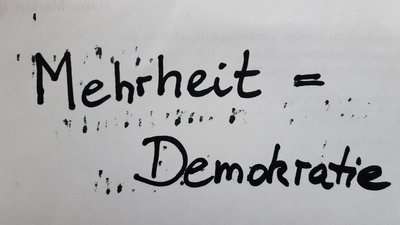 Mehrheit =
Demokratie